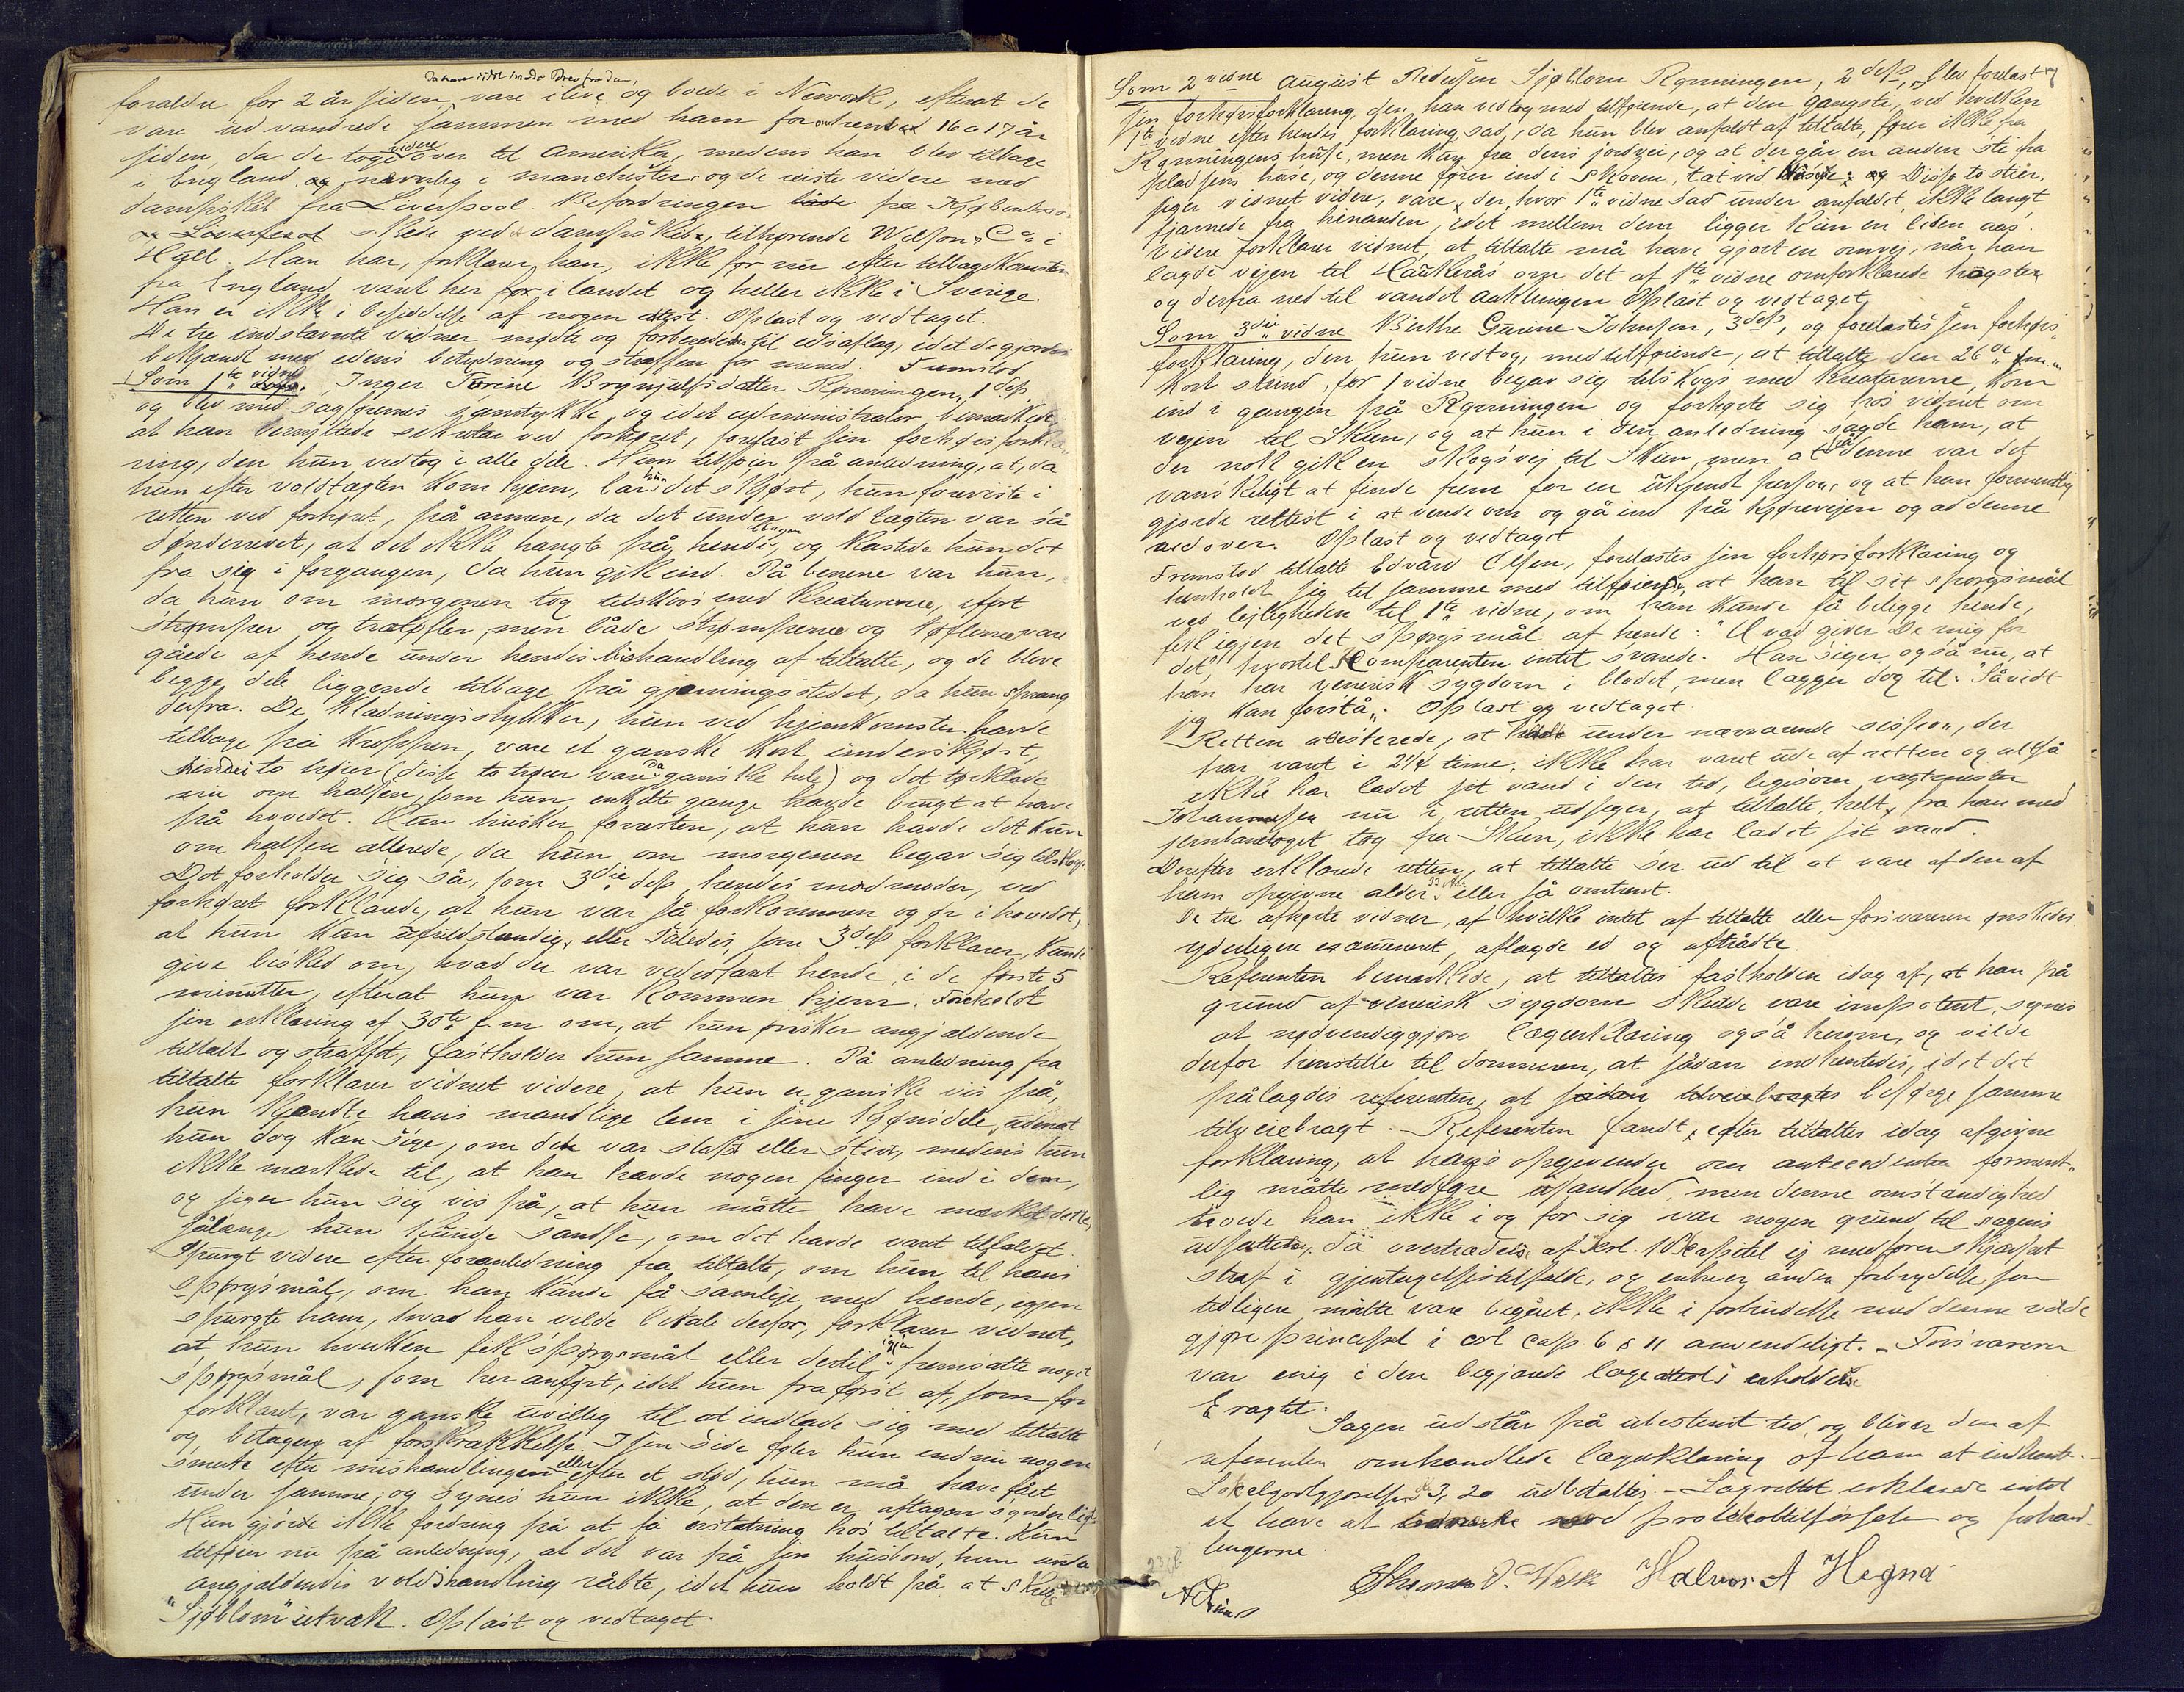 da han sidst havde Brev fra dem,
forældre for 2 år siden vare ilive og boede i Newark, efterat de
vare udvandrede sammen med ham for omtrent 16 a 17 år
siden, da de toge videre over til Amerika, medens han blev tilbage
i England og navnlig i Manchester, og de reiste videre med
dampskib fra Liverpool. Befordringen både fra Kjøbenhavn
skede ved dampskibe, tilhørende Wilson & Co i
Hull. Han har, forklarer han, ikke før nu efter tilbagekomsten
fra England været her i landet og heller ikke i Sverige.
Han er ikke i besiddelse af nogen attest. Oplæst og vedtaget.
De tre indstævnte vidner mødte og forberededes til edsaflæg, idet de gjordes
bekjendt med edens betydning og straffen for mened. Fremstod
Som 1te vidne Inger Tørine Brynjulfsdatter Rønningen, 1 dep.
og blev med sagførernes samtykke, og idet administrator bemærkede,
at han benyttede sekretær ved forhøret, forelæst sin forhørsforkla-
ring, den hun vedtog i alle dele. Hun tilføier på anledning, at, da
hun efter voldtægten kom hjem, bar hun det skjørt, hun foreviste i
retten ved forhøret, på armen, da det under voldtægten var så
sønderrevet, at det ikke hangte på hende, og kastede hun det
fra sig i forgangen, da hun gik ind. På benene var hun,
da hun om morgenen tog tilskovs med kreaturerne, iført
strømper og trætøfler, men både strømperne og tøflerne vare
gåede af hende under hendes mishandling af tiltalte, og de bleve
begge dele liggende tilbage på gjerningsstedet, da hun sprang
derfra. De klædningsstykker, hun ved hjemkomsten havde
tilbage på kroppen, vare et ganske kort underskjørt,
hendes to trøier (disse to trøier vare da ganske hele) og det tørklæde
nu om halsen, som hun enkelte gange havde brugt at have
på hovedet. Hun husker forresten, at hun havde det kun
om halsen allerede, da hun om morgenen begav sig tilskogs.
Det forholder sig så, som 3die dep, hendes madmoder, ved
forhøret forklarede, at hun var så forkommen og ør i hovedet,
at hun kun ufuldstændig, eller således, som 3 dep forklarer, kunde
give besked om, hvad der var vederfaret hende, i de første 5
minutter, efterat hun var kommen hjem. Foreholdt
sin erklæring af 30te f.m om, at hun ønsker angjældende
tiltalt og straffet, fastholder hun samme. På anledning fra
tiltalte forklarer vidnet videre, at hun er ganske vis på,
hun kjendte hans mandlige lem i sine kjønsdele, uden at
hun dog kan sige, om det var slapt eller stivt, medens hun
ikke mærkede til, at han havde nogen finger ind i dem,
og siger hun sig vis på, at hun måtte have mærket dette,
sålænge hun kunde sandse, om det havde været tilfældet.
Spurgt videre efter foranledning fra tiltalte, om hun til hans
spørgsmål, om han kunde få samleje med hende, igjen
spurgte ham, hvad han vilde betale derfor, forklarer vidnet,
at hun hverken fik spørgsmål eller dertil igjen fremsatte noget
spørgsmål, som her anført, idet hun fra først af, som før
forklaret, var ganske uvillig til at indlade sig med tiltalte
og betagen af forskrækkelse. I sin side føler hun endnu nogen
smerte efter mishandlingen eller efter et stød, hun må have fået
under samme, og synes hun ikke, at den er aftagen synderligt.
Hun gjorde ikke fordring på at få erstatning hos tiltalte. Hun
tilføier nu på anledning, at det var på sin husbond, hun under
angjældendes voldshandling råbte, idet hun holdt på at skrige
"Sjøblom" uitvak. Oplæst og vedtaget.
Som 2 vidne August Pedersen Sjøblom Rønningen, 2 dep, blev forelæst
sin forhørsforklaring, den han vedtog med tilføiende, at den gangsti, ved hvilken
1te vidne efter hendes forklaring sad, da hun blev anfaldt af tiltalte, fører ikke fra
Rønningens huse, men kun fra dens jordvei, og at der går en anden sti fra
pladsens huse, og denne fører ind i skoven, tæt ved Disse to stier,
siger vidnet videre, vare, der, hvor 1te vidne sad under anfaldet, ikke langt
fjærnede fra hinanden, idet mellem dem ligger kun en liden aas.
Videre forklarer vidnet, at tiltalte må have gjort en omvej, når han
lagde vejen til Haukerås om det af 1te vidne omforklarede
og derfra ned til vandet Oplæst og vedtaget
Som 3die vidne Birthe Gurine Johnsen, 3 dep, og forelæstes sin forhørs
forklaring, den hun vedtog, med tilføiende, at tiltalte den 26de
kort stund, før 1 vidne begav sig tilskogs med kreaturerne, kom
ind i gangen på Rønningen og forhørte sig hos vidnet om
vejen til Skien, og at hun i den anledning sagde ham, at
der nok gik en skogsvej til Skien, men at på denne var det
vanskeligt at finde frem for en ukjendt person, og at han formentlig
gjorde rettest i at vende om og gå ind på kjørevejen og ad denne
nedover. Oplæst og vedtaget
Fremstod tiltalte Edvard Olsen, forelæstes sin forhørsforklaring og
henholdt sig til samme med tilføiende, at han til sit spørgsmål
ved lejligheden til 1te vidne, om han kunde få beligge hende,
fik igjen det spørgsmål af hende: "Hvad giver De mig for
det", hvortil Komparenten intet svarede. Han siger også nu, at
han har venerisk sygdom i blodet, men lægger dog til "Såvidt
jeg kan forstå". Oplæst og vedtaget.
Retten attesterede, at under nærværende session, der
har varet i 2 1/4 time, ikke har været ude af retten og altså
ikke har ladet sit vand i den tid, ligesom vagtmester
Johannessen nu i retten udsiger, at tiltalte, helt fra han med
jernbanetoget tog fra Skien, ikke har ladet sit vand.
Derefter erklærede retten, at tiltalte ser ud til at være af den af
ham opgivne alder 33 år eller så omtrent.
De tre afhørte vidner, af hvilke intet af tiltalte eller forsvareren ønskedes
yderligere examineret, aflagde ed og aftrådte.
Referenten bemærkede, at tiltaltes fastholden idag af, at han på
grund af venerisk sygdom skulde være impotent, synes
at nødvendiggjøre lægeerklæring også herom, og vilde
derfor henstille til dommeren, at sådan indhentedes, idet det
pålagdes referenten, at sådan tilveiebragtes besørge samme
tilveiebragt. Referenten fandt, efter tiltaltes idag afgivne
forklaring, at hans opgivender om antecedentia forment-
lig måtte medføre usandhed, men denne omstændighed
troede han ikke i og for sig var nogen grund til sagens
udsættelse, da overtrædelse af krl. 18 kapitel ej medfører skjærpet
straf i gjentagelsestilfælde, og enhver anden forbrydelse, som
tidligere måtte være begået, ikke i forbindelse med denne vilde
gjøre princippet i crl cap 6 § 11 anvendeligt. – Forsvareren
var enig i den begjærede lægeattests erholdelse
Eragtet:
Sagen udstår på ubestemt tid, og bliver den af
referenten omhandlede lægeerklæring af ham at indhente. –
Lokalgodtgjørelsen 3, 20 udbetaltes. – Lagrettet erklærede intet
at have at bemærke ved protokoltilførselen og forhand-
lingerne.
Halvor A Hegna